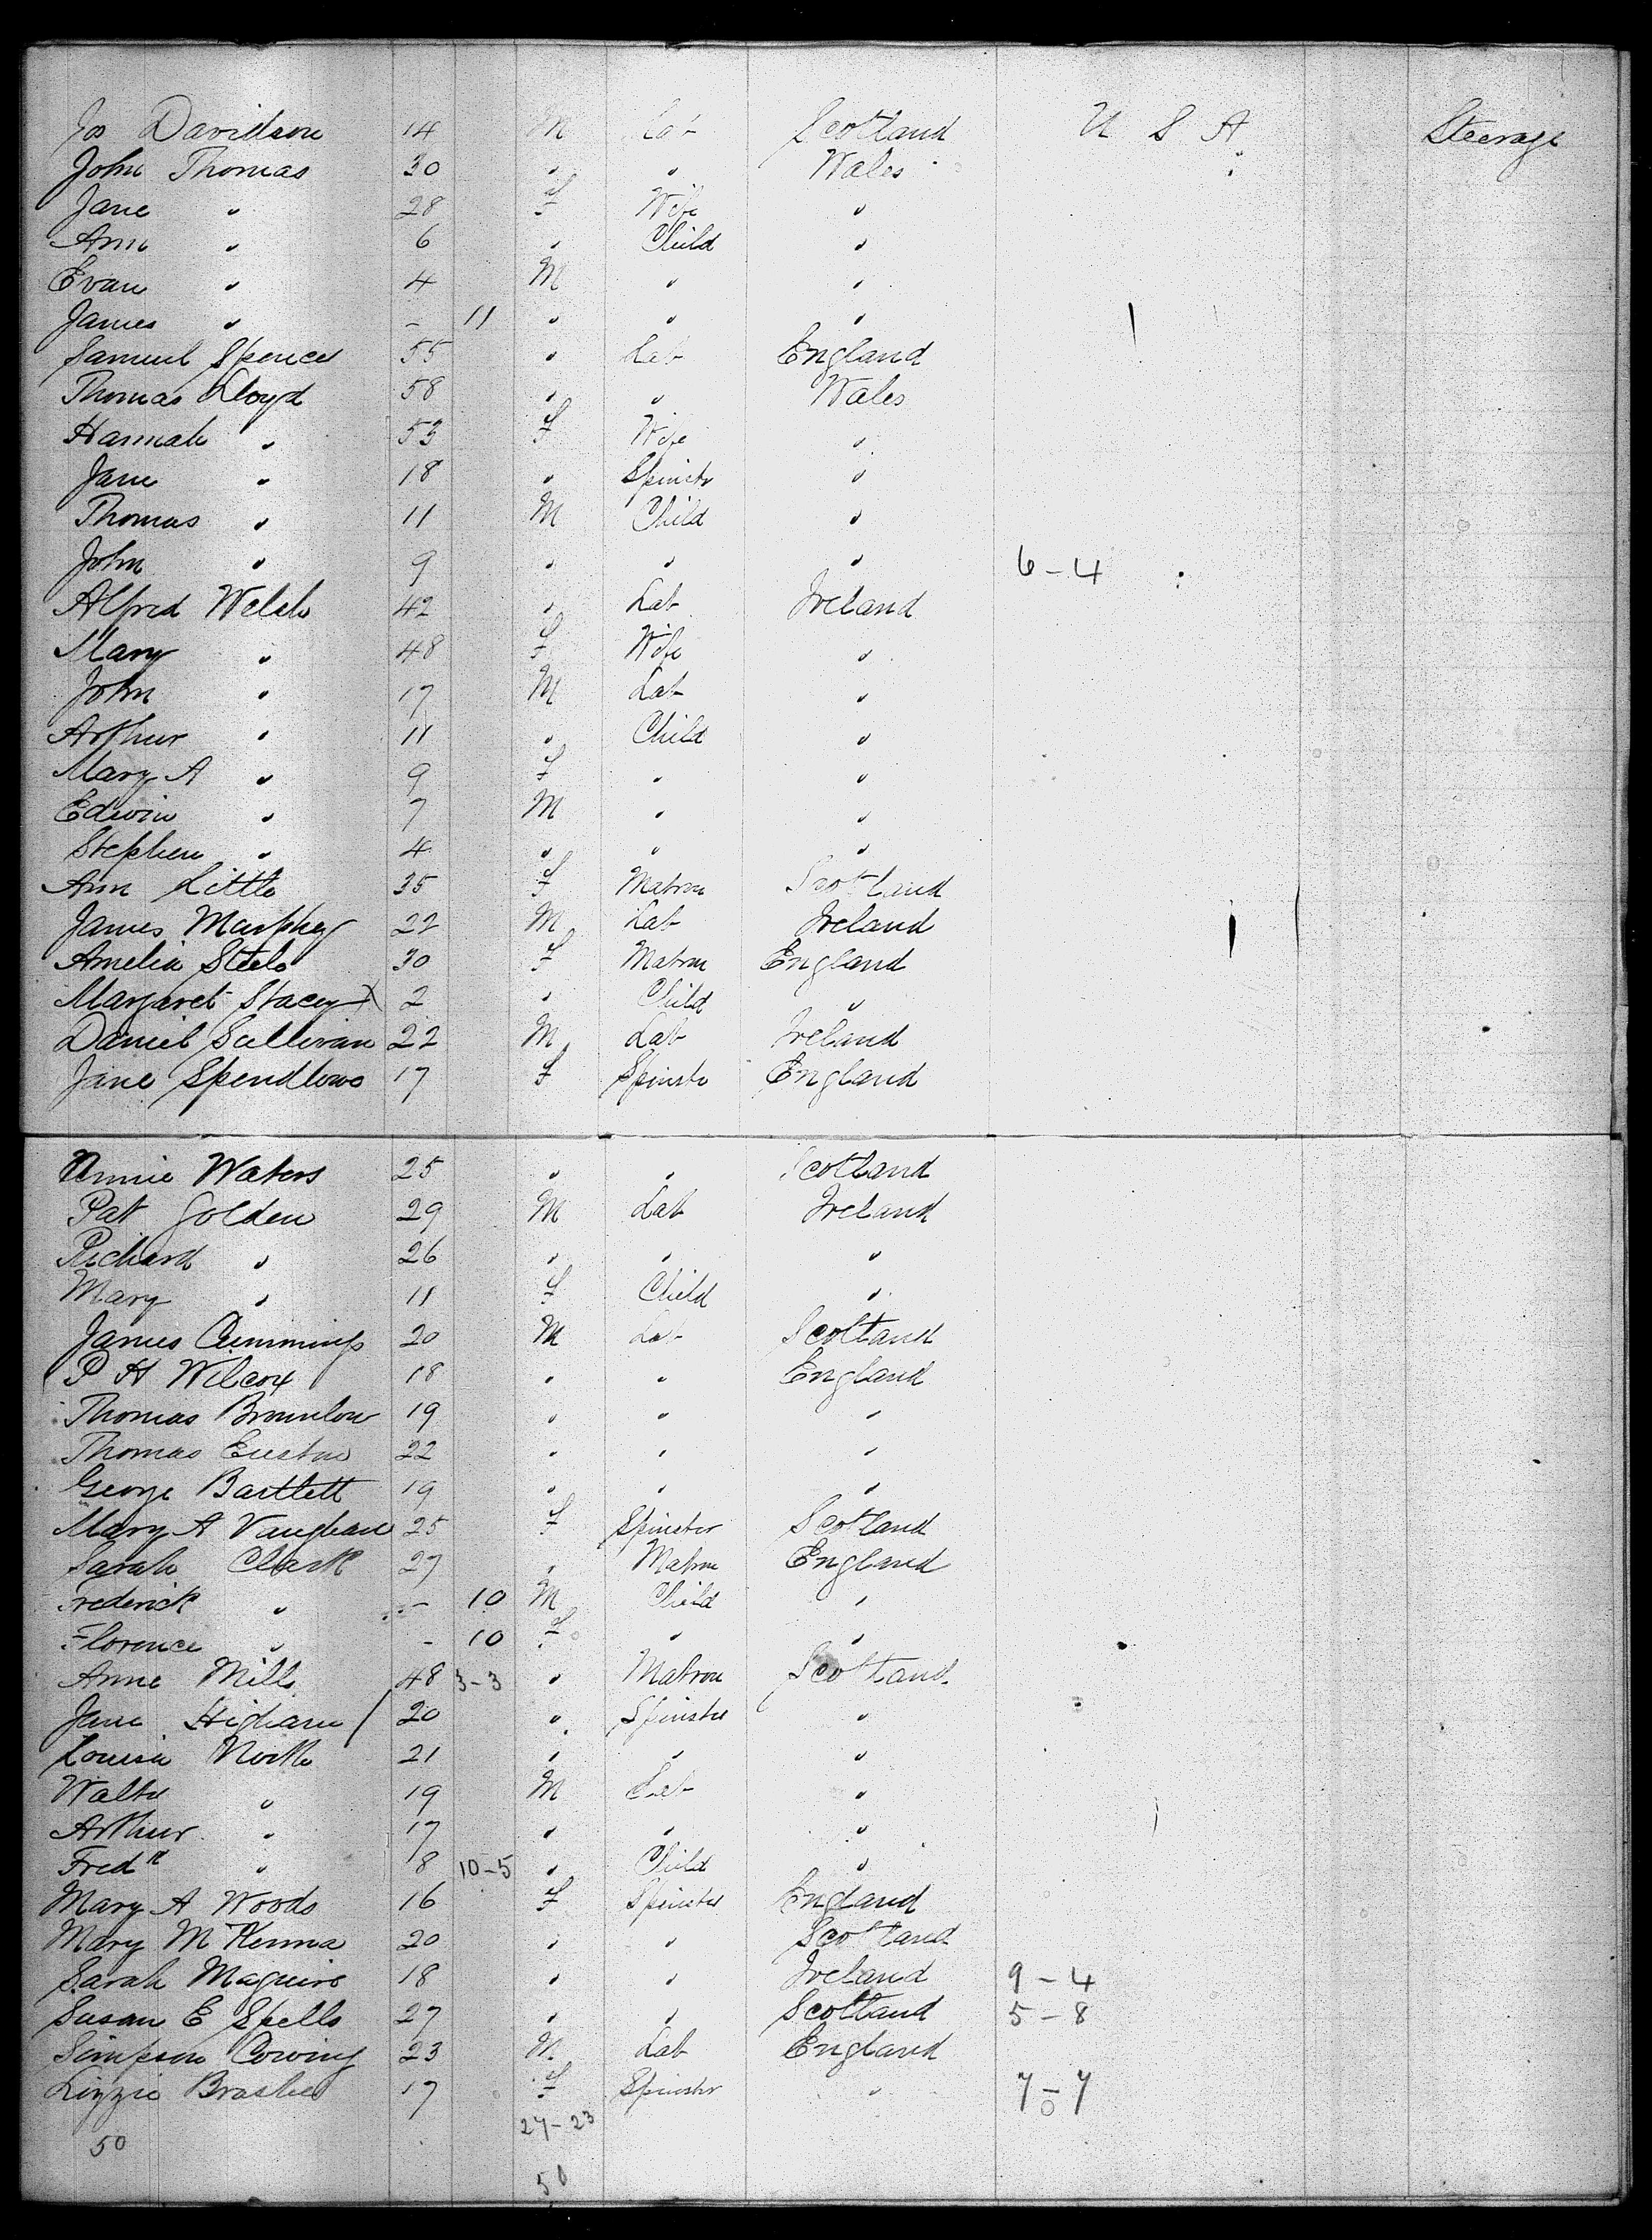 Jos Davidson 14 M Lab Scotland U S A Steerage
John Thomas 30 " " Wales "
Jane " 28 F Wife "
Ann " 6 " Child "
Evan " 4 M " "
James " - 11 " " "
Samuel Spencer 55 " Lab England
Thomas Lloyd 58 " " Wales
Hannah " 53 F Wife "
Jane " 18 " Spinstr "
Thomas " 11 M Child "
John " 9 " " " 6-4
Alfred Welsh 42 " Lab Ireland
Mary " 48 F Wife "
John " 17 M Lab "
Arthur " 11 " Child "
Mary A " 9 F " "
Edwin " 7 M " "
Stephen " 4 " " "
Ann Little 35 F Matron Scotland
James Murphy 22 M Lab Ireland
Amelia Steele 30 F Matron England
Margaret Stacey X 2 " Child "
Daniel Sullivan 22 M Lab Ireland
Jane Spendlowe 17 F Spinstr England
Annie Waters 25 " " Scotland
Pat Golden 29 M Lab Ireland
Richard " 26 " " "
Mary " 11 F Child "
James Cummings 20 M Lab Scotland
P H Wilcox 18 " " England
Thomas Brownlow 19 " " "
Thomas 22 " " "
George Bartlett 19 " " "
Mary A Vaughan 25 F Spinster Scotland
Sarah Clark 27 " Matron England
Frederick " - 10 M Child "
Florence " - 10 F " "
Anne Mills 48 3-3 " Matron Scotland
Jane Higham / 20 " Spinster "
Louisa North 21 " " "
Walter " 19 M Lab "
Arthur " 17 " " "
Fredk " 8 10-5 " Child "
Mary A Woods 16 F Spinster England
Mary McKenna 20 " " Scotland
Sarah Maguire 18 " " Ireland 9-4
Susan E Spells 27 " " Scotland 5-8
Simpson Cowing 23 M Lab England
Lizzie 17 F Spinster " 7-7
27-23
50
50